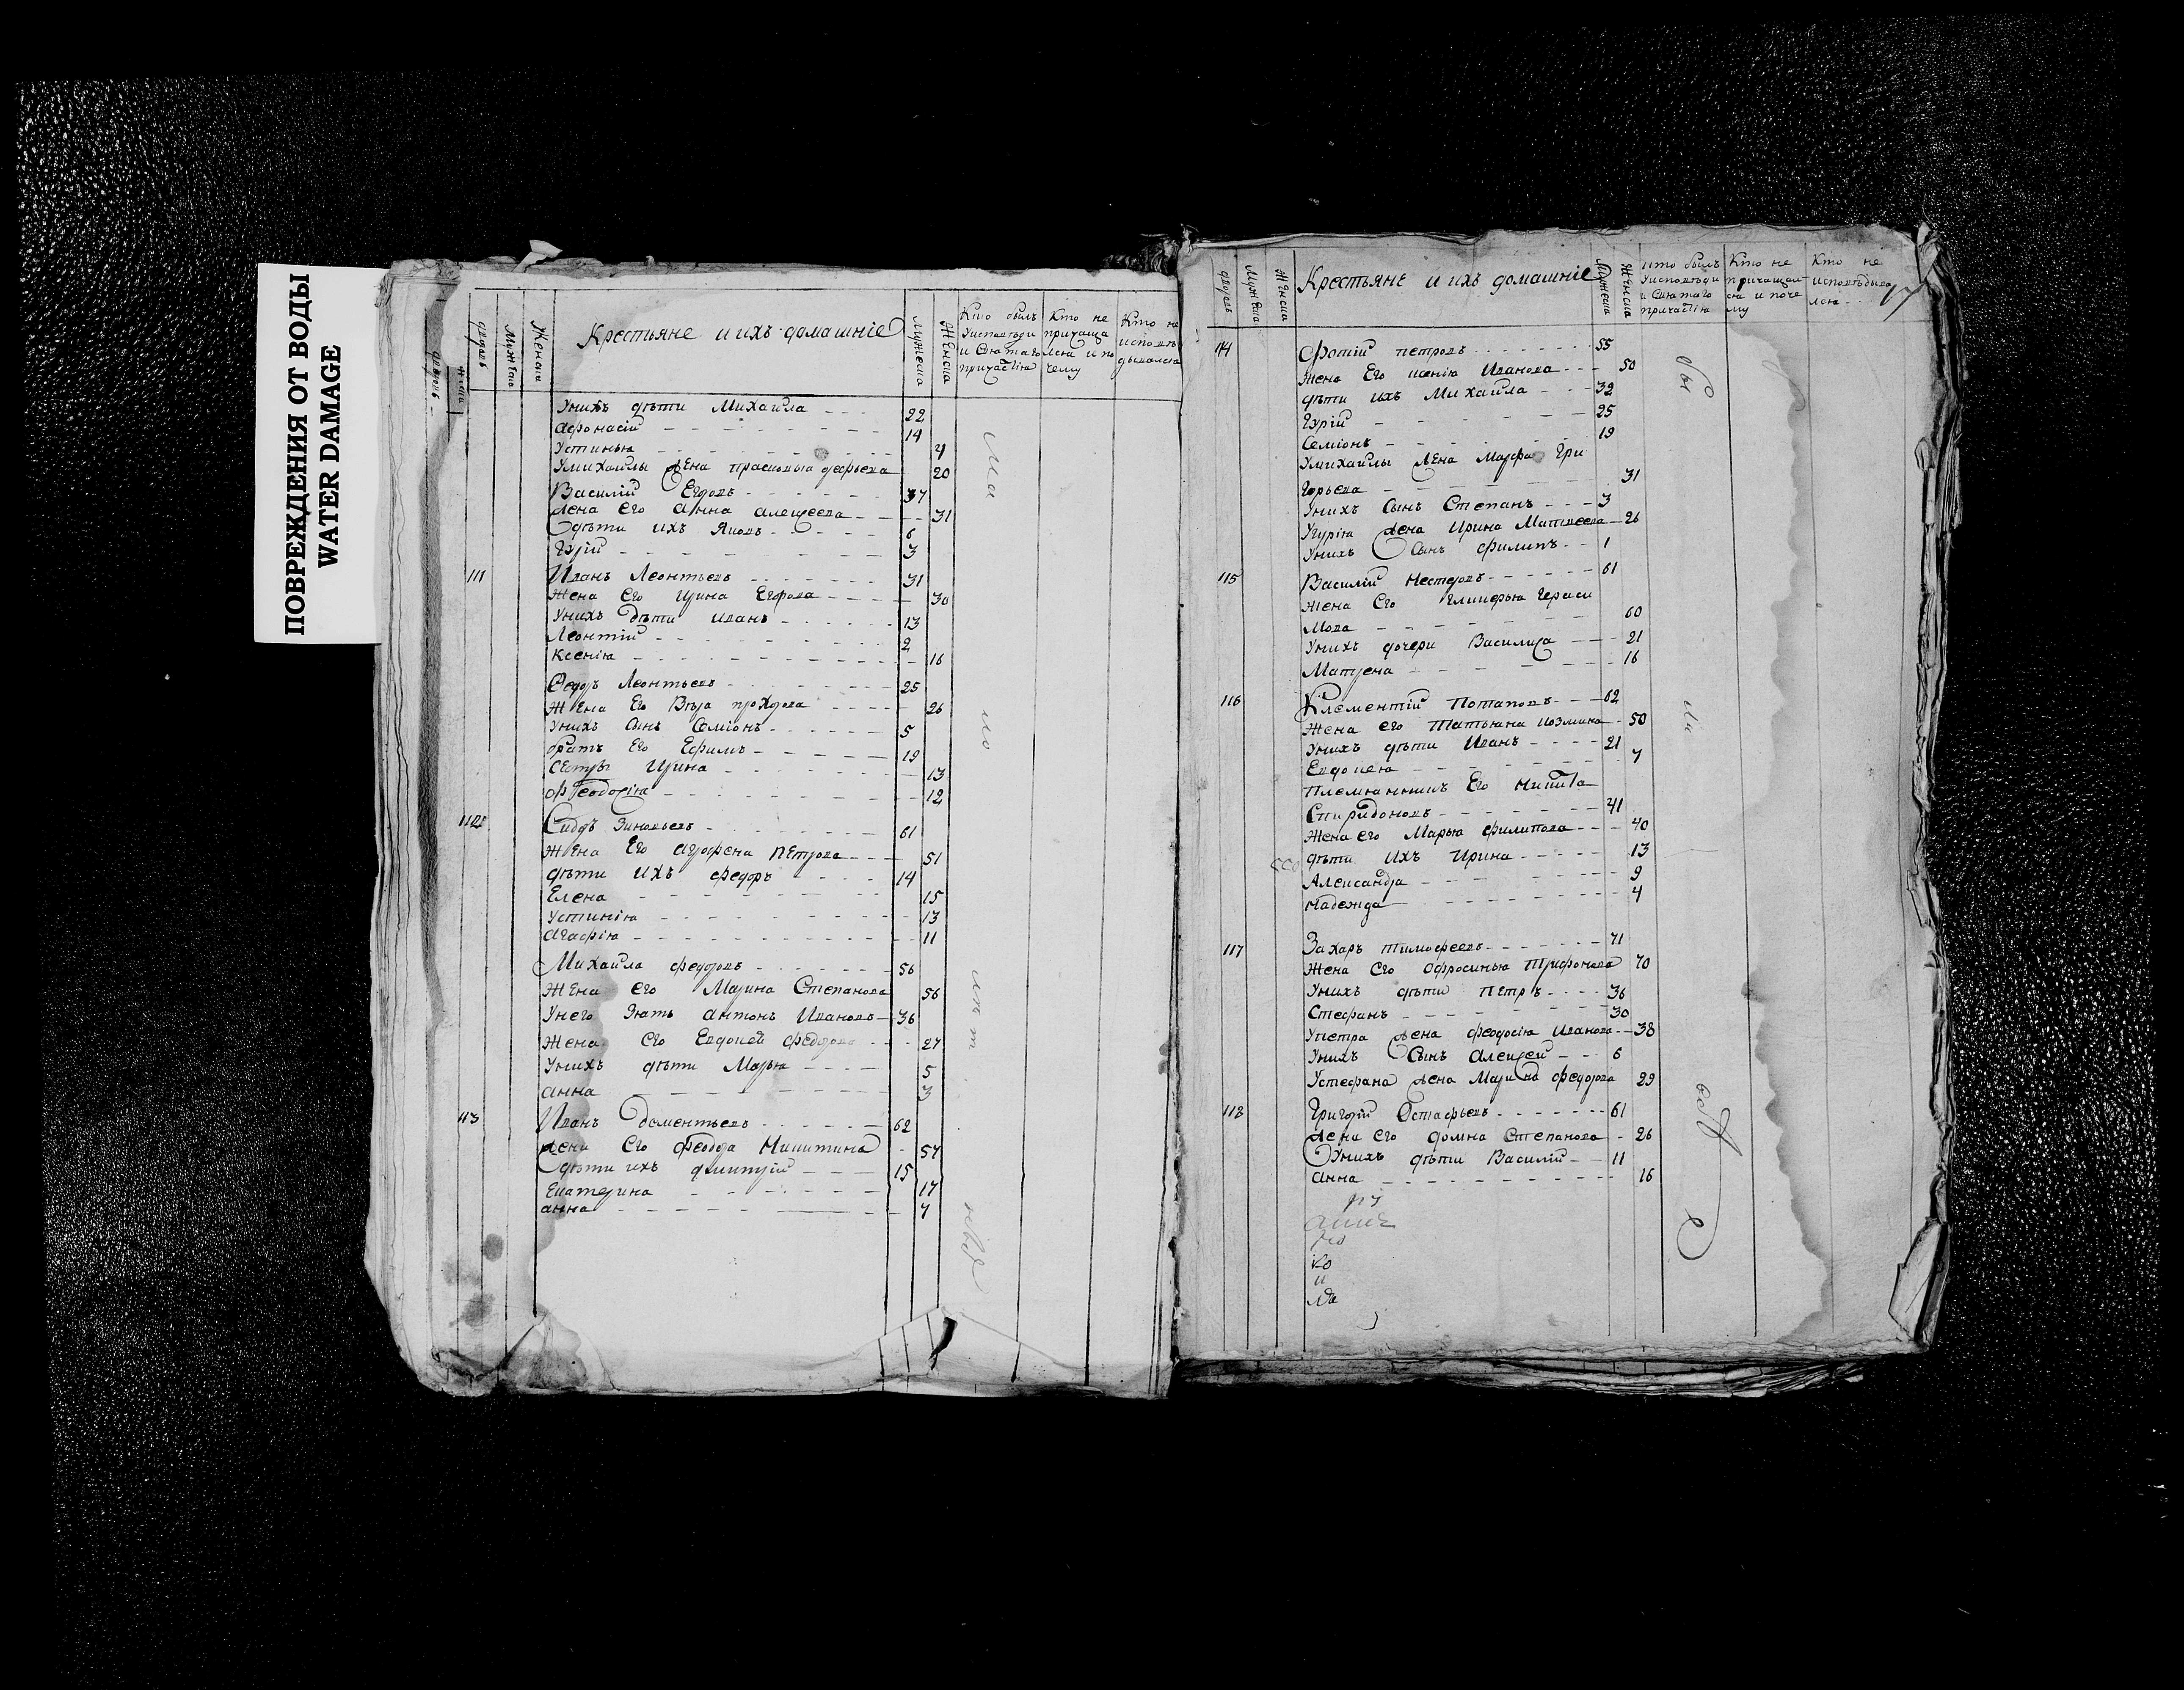 ПОВРЕЖДЕНИЯ ОТ ВОДЫ
WATER DAMAGE
дворовъ
Мужеска
Женска
Крестьяне и ихъ домашніе
Мужеска
Женска
Кто былъ
Уисповѣди
и Святаго
причастія
Кто не
причаща
лся и по
чему
Кто не
исповѣ
дывался
Унихъ дѣти Михайла 22
Афонасій 14
Устинья 4
Умихайлы жена Прасковья 20
Василій Егоровъ 37
жена его Анна Алексеева 31
дѣти ихъ Яковъ 6
Гурій 3
111 Иванъ Леонтьевъ 31
жена Его Ирина Егорова 30
Унихъ дѣти Иванъ 13
Леонтій 2
Ксенія 16
Федоръ Леонтьевъ 25
Жена Его Вѣра прохорова 26
Унихъ сынъ Семіонъ 5
братъ Его Ефимъ 19
Сестры Ирина 13
Феодосія 12
112 Сидоръ Зиновьевъ 61
Жена Его Агрофена Петрова 51
дѣти ИХЪ федоръ 14
Елена 15
Устинія 13
Агафія 11
Михайла федоровъ 56
Жена его Марина Степанова 56
Унего Зять Антонъ Ивановъ 36
Жена Его Евдокей федорова 27
Унихъ дѣти Марья 5
Анна 3
113 Иванъ Дементьевъ 62
жена Его Феодора Никитина 57
дѣти ихъ дмитрій 15
Екатерина 17
Анна 7
дворовъ
Мужеска
Женска
Крестьяне и ихъ домашніе
Мужеска
Женска
Кто былъ
Уисповѣди
и Святаго
причастія
Кто не
причащал
ся и поче
му
Кто не
исповѣдыва
лся
17
114 Фотій петровъ 55
жена Его ксенія Иванова 50
дѣти ихъ Михайла 32
Гурій 25
Семіонъ 19
Умихайлы жена Марфа Гри
горьева 31
Унихъ сынъ Степанъ 3
Угурія жена Ирина Матвеева 26
Унихъ Сынъ филипъ 1
115 Василій Нестеровъ 61
жена Его Гликерья Гераси
мова 60
Унихъ дочери Василиса 21
Матрена 16
116 Клементій Потаповъ 62
жена его Татьяна козмина 50
Унихъ дѣти Иванъ 21
Евдокея 7
племянникъ Его никита
Спиридоновъ 41
жена его Марья филипова 40
дѣти ихъ Ирина 13
Александра 9
надежда 4
117 Захаръ тимофеевъ 71
жена Его Офросинья Трифонова 70
Унихъ дѣти петръ 36
Стефанъ 30
Упетра жена феодосія Иванова 38
Унихъ Сынъ Алексей 6
Устефана жена Марина федорова 29
118 Григорій Остафьевъ 61
жена его домна Степанова 26
Унихъ дѣти Василій 11
Анна 16
ко
и